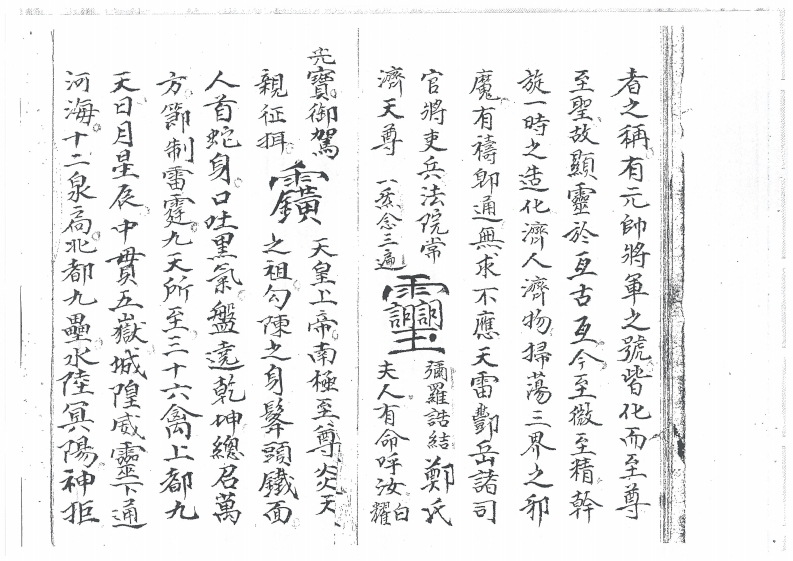 者之稱有元帥將軍之號皆化而至尊
至聖故顯靈於亙古亙今至微至精幹
旋一時之造化濟人濟物掃蕩三界之邪
魔有禱即通無求不應天雷酆岳諸司
官將吏兵法院常彌羅誥結鄭氏
濟天尊 念三遍 夫人有命呼汝白耀
寶御駕 天皇上帝南極至尊炎天
親征 之祖勾陳之身髼頭鐵面
人首蛇身口吐黑氣盤遶乾坤總召萬
方節制雷霆九天所至三十六禽上都九
天日月星辰中貫五嶽城隍威靈下通
河海十二泉扃北都九壘水陸冥陽神拒